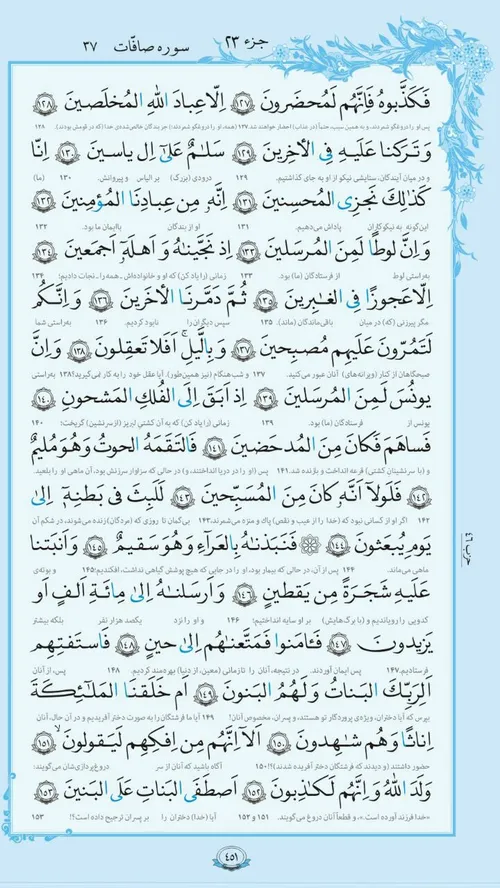 جزء ۲۳
سوره صافّات ۳۷
فَكَذَّبوهُ فَاِنَّهُم لَمُحضَرونَ ﴿١٢٧﴾ اِلّا عِبادَ اللهِ المُخلَصينَ ﴿١٢٨﴾
پس او را دروغگو شمردند، و به همین سبب، حتماً (در عذاب) احضار خواهند شد. ۱۲۷
وَ تَرَكنا عَلَيهِ فِى الأخِرينَ ﴿١٢٩﴾ سَلٰمٌ عَلىٰٓ اِل ياسينَ ﴿١٣٠﴾ اِنّا
و در میان آیندگان، ستایشی نیکو از او به جای گذاشتیم. ۱۲۹ درودی (بزرگ) بر الیاس و پیروانش. ۱۳۰ (ما)
كَذٰلِكَ نَجزِى المُحسِنينَ ﴿١٣١﴾ اِنَّهٗ مِن عِبادِنَا المُؤمِنينَ ﴿١٣٢﴾
این‌گونه به نیکوکاران پاداش می‌دهیم. ۱۳۱ او از بندگان باایمان ما بود. ۱۳۲
وَ اِنَّ لوطًا لَمِنَ المُرسَلينَ ﴿١٣٣﴾ اِذ نَجَّينٰهُ وَ اَهلَهٗٓ اَجمَعينَ ﴿١٣٤﴾
به‌راستی لوط از فرستادگان (ما) بود. ۱۳۳ زمانی (را یاد کن) که او و خانواده‌اش ـ همه را ـ نجات دادیم؛ ۱۳۴
اِلّا عَجوزًا فِى الغٰبِرينَ ﴿١٣٥﴾ ثُمَّ دَمَّرنَا الأخَرينَ ﴿١٣٦﴾ وَ اِنَّكُم
مگر پیرزنی (که) در میان باقی‌ماندگان (ماند). ۱۳۵ سپس دیگران را نابود کردیم. ۱۳۶ به‌راستی شما
لَتَمُرّونَ عَلَيهِم مُصبِحينَ ﴿١٣٧﴾ وَ بِالَّيلِ ۚ اَفَلا تَعقِلونَ ﴿١٣٨﴾ وَ اِنَّ
صبحگاهان از کنار (ویرانه‌های) آنان عبور می‌کنید. ۱۳۷ و شب‌هنگام (نیز همین‌طور). آیا عقل خود را به کار نمی‌گیرید؟ ۱۳۸ به‌راستی
يونُسَ لَمِنَ المُرسَلينَ ﴿١٣٩﴾ اِذ اَبَقَ اِلَى الفُلكِ المَشحونِ ﴿١٤٠﴾
یونس از فرستادگان (ما) بود. ۱۳۹ زمانی (را یاد کن) که به آن کشتی لبریز (از سرنشین) گریخت؛ ۱۴۰
فَساهَمَ فَكانَ مِنَ المُدحَضينَ ﴿١٤١﴾ فَالتَقَمَهُ الحوتُ وَ هُوَ مُليمٌ
و (با سرنشینان کشتی) قرعه انداخت و بازنده شد. ۱۴۱ پس (او را در دریا انداختند، و) در حالی که سزاوار سرزنش بود، آن ماهی او را بلعید.
﴿١٤٢﴾ فَلَولآ اَنَّهٗ كانَ مِنَ المُسَبِّحينَ ﴿١٤٣﴾ لَلَبِثَ فى بَطنِهٖٓ اِلىٰ
۱۴۲ اگر او از کسانی نبود که (خدا را از عیب و نقص) پاک و منزه می‌شمرند، ۱۴۳ بی‌گمان تا روزی که (مردگان) زنده می‌شوند، در شکم آن
يَومِ يُبعَثونَ ﴿١٤٤﴾ فَنَبَذنٰهُ بِالعَرآءِ وَ هُوَ سَقيمٌ ﴿١٤٥﴾ وَ اَنبَتنا
ماهی می‌ماند. ۱۴۴ پس از آن، در حالی که بیمار بود، او را در جایی که هیچ پوشش گیاهی نداشت، افکندیم؛ ۱۴۵ و بوته‌ی
عَلَيهِ شَجَرَةً مِن يَقطينٍ ﴿١٤٦﴾ وَ اَرسَلنٰهُ اِلىٰ مِائَةِ اَلفٍ اَو
کدویی را رویاندیم و (با برگ‌هایش) بر او سایه انداختیم؛ ۱۴۶ و او را نزد یکصد هزار نفر بلکه بیشتر
يَزيدونَ ﴿١٤٧﴾ فَـٔامَنوا فَمَتَّعنٰهُم اِلىٰ حينٍ ﴿١٤٨﴾ فَاستَفتِهِم
فرستادیم. ۱۴۷ پس ایمان آوردند. در نتیجه، آنان را تا زمانی (معین، از دنیا) بهره‌مند کردیم. ۱۴۸ پس، از آنان
اَلِرَبِّكَ البَناتُ وَ لَهُمُ البَنونَ ﴿١٤٩﴾ اَم خَلَقنَا المَلٰٓئِكَةَ
بپرس که آیا دختران، ویژه‌ی پروردگار تو هستند، و پسران، مخصوص آنان؟ ۱۴۹ آیا ما فرشتگان را به صورت دختر آفریدیم و در آن حال، آنان
اِناثًا وَ هُم شٰهِدونَ ﴿١٥٠﴾ اَلآ اِنَّهُم مِن اِفكِهِم لَيَقولونَ ﴿١٥١﴾
حضور داشتند (و دیدند که فرشتگان دختر آفریده شدند)؟! ۱۵۰ آگاه باشید که آنان از سر دروغ‌پردازی‌شان می‌گویند:
وَلَدَ اللهُ وَ اِنَّهُم لَكٰذِبونَ ﴿١٥٢﴾ اَصطَفَى البَناتِ عَلَى البَنينَ ﴿١٥٣﴾
«خدا فرزند آورده است.»، و قطعاً آنان دروغ می‌گویند. ۱۵۱ و ۱۵۲ آیا (خدا) دختران را بر پسران ترجیح داده است؟! ۱۵۳
حزب ٤٦
٤٥١